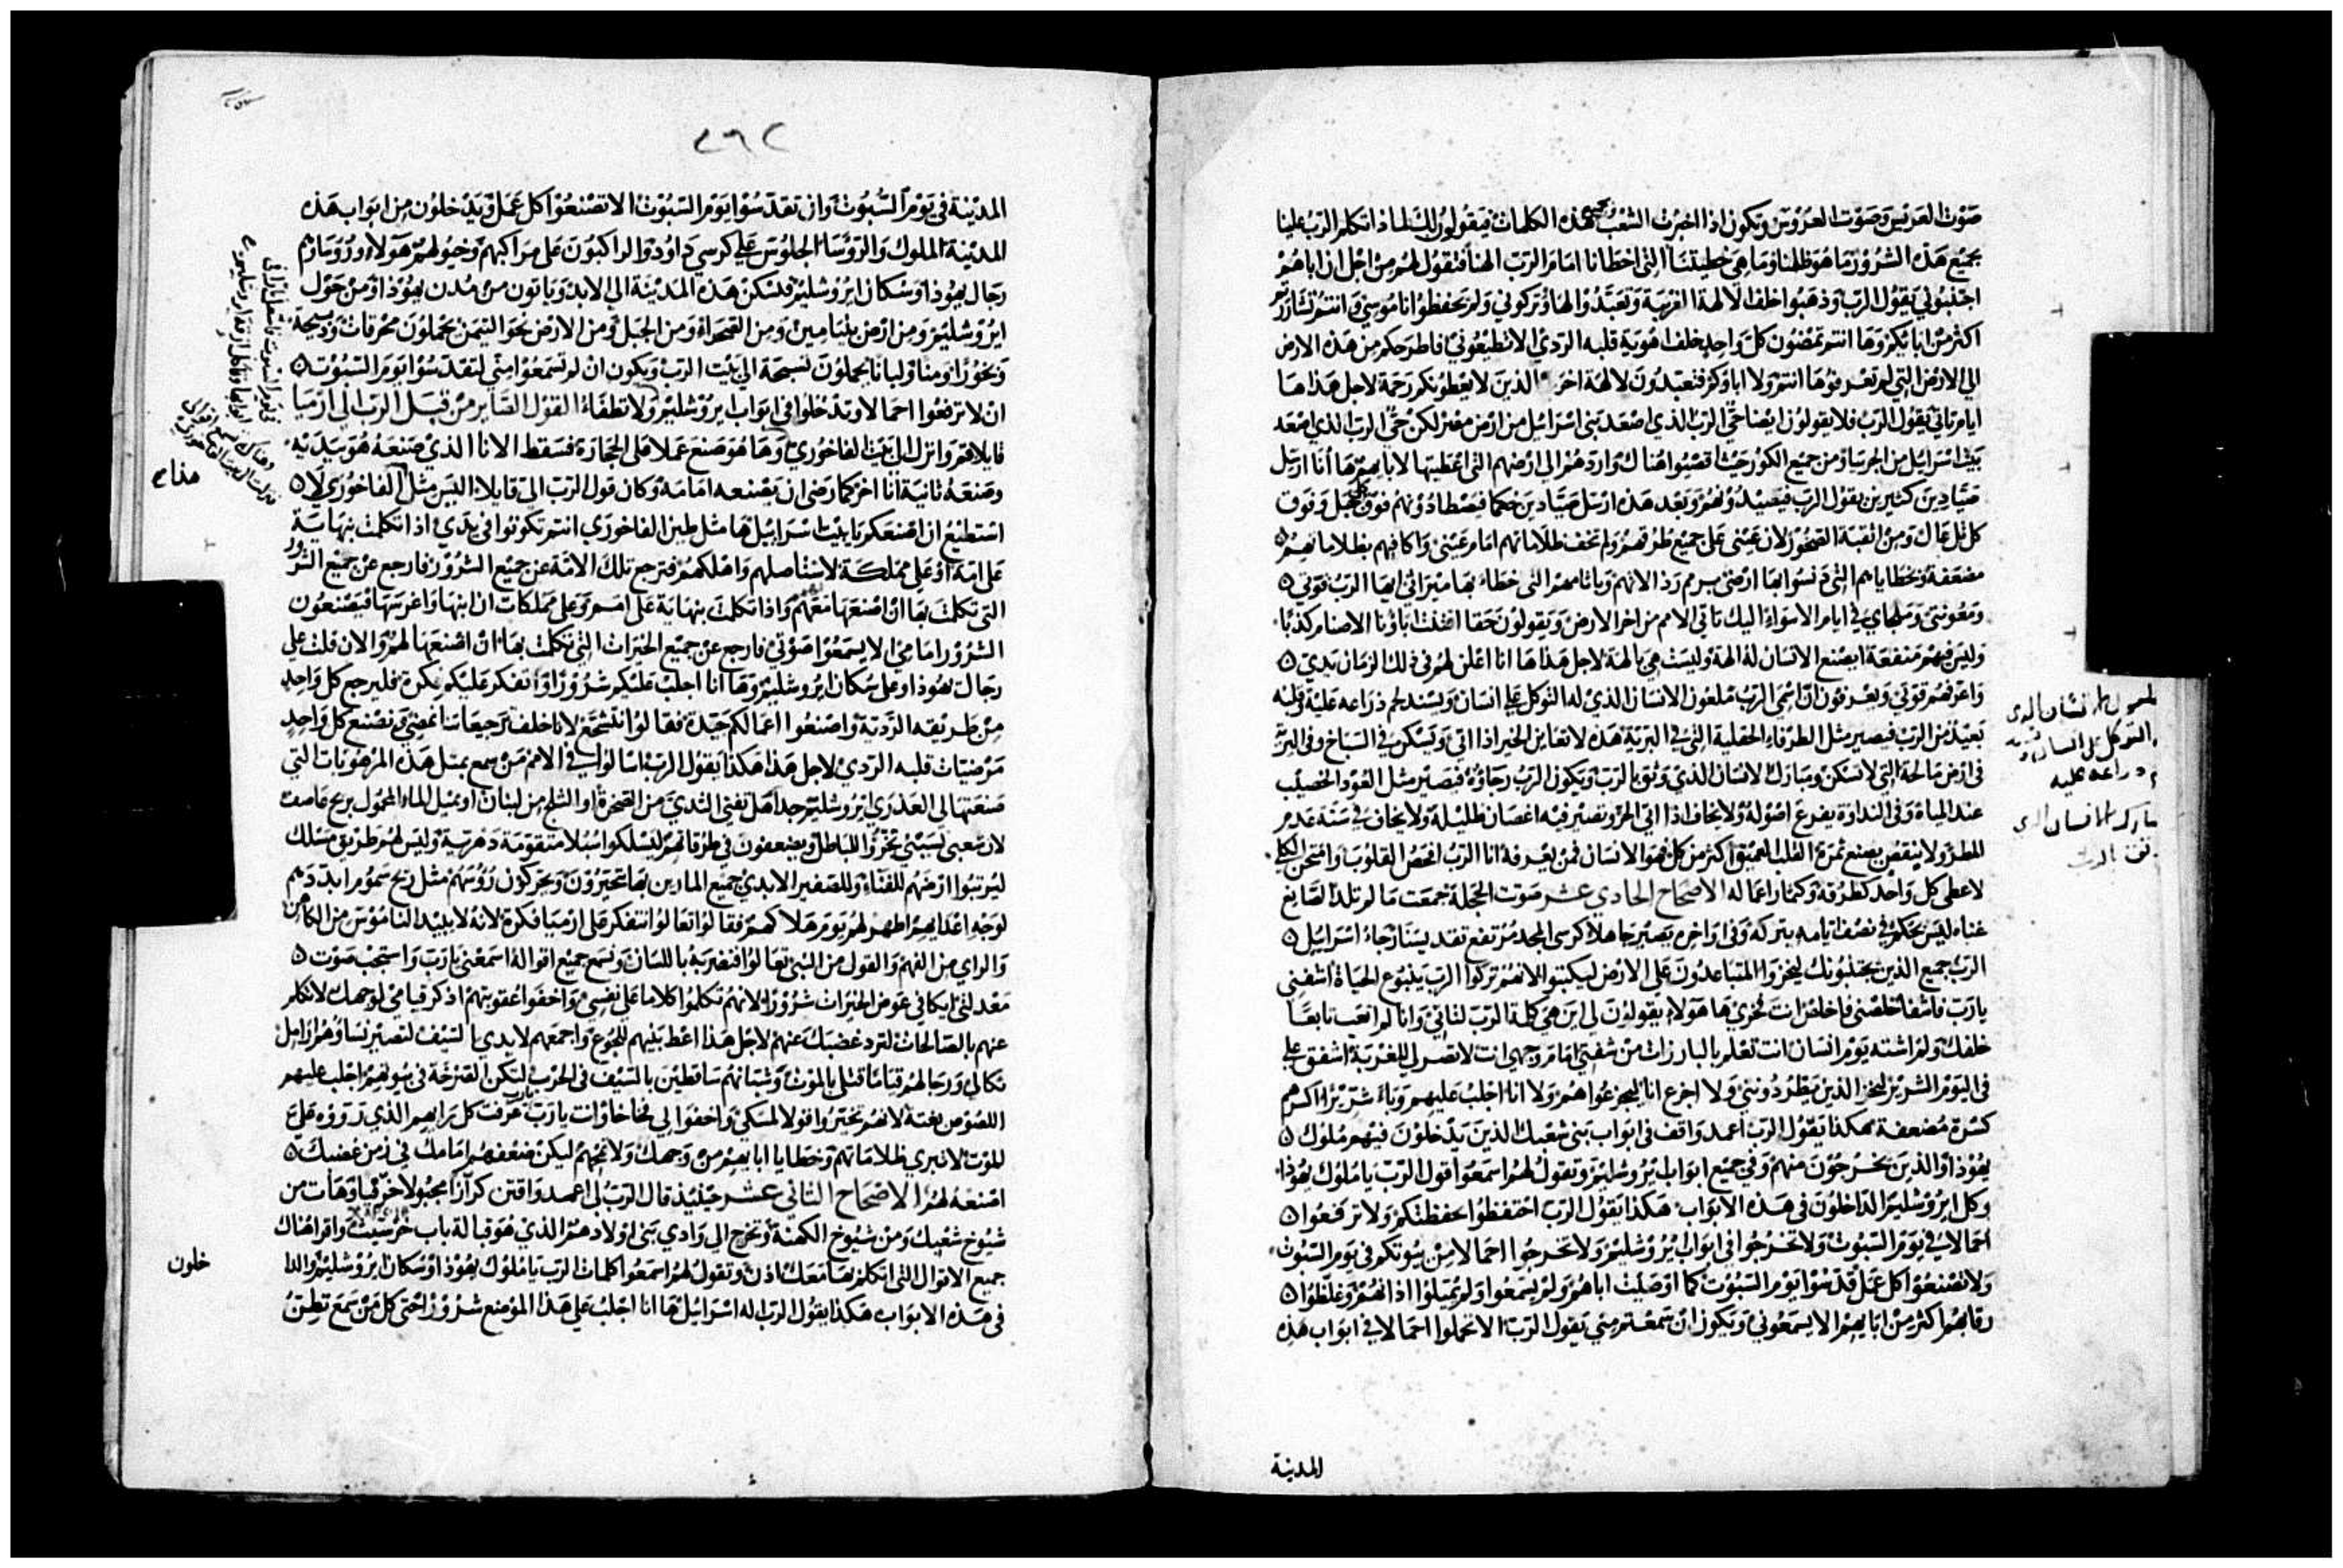 صوت العريس وصوت العروس ويكون اذا اخبرت الشعب بجميع هذه الكلمات فيقولون لك لماذا تكلم الرب علينا
بجميع هذه الشرور وما هو ظلمنا وما هي خطيتنا التي اخطانا امام الرب الهنا فتقول لهم من اجل ان اباهم
اجتنبوني يقول الرب وذهبوا خلف الالهة الغريبة وتعبدوا لها وتركوني ولم يحفظوا ناموسي وانتم
اكثر من ابايكم وها انتم تمضون كل واحد خلف هوية قلبه الردي الا تطيعوني فاطرحكم من هذه الارض
الى الارض التي لم تعرفوها انتم ولا اباوكم فتعبدون لالهة اخر الذين لا يعطونكم رحمة لاجل هذا ها
ايام تاتي يقول الرب فلا يقولون ايضا حي الرب الذي اصعد بني اسراييل من ارض مصر لكن حي الرب الذي اصعد
بيت اسراييل من الجربيا ومن جميع الكور حيث اقصيوا هناك واردهم الى ارضهم التي اعطيتها لابايهم ها انا ارسل
صيادين كثيرين يقول الرب فيصيدونهم وبعد هذه ارسل صيادين حكما فيصطادونهم فوق كل جبل وفوق
كل تل عال ومن اثقبة الصخور لان عيني على جميع طرقهم ولم تخف ظلاماتهم امام عيني واكافيهم بظلاماتهم
مضعفة وبخطاياهم التي دنسوا بها ارضي برمم رذالاتهم وباثامهم التي خطاء بها ميراثي ايها الرب قوتي
ومعونتي وملجاي في ايام الاسواء اليك تاتي الامم من اخر الارض ويقولون حقا اقتنت اباونا الاصنام كذبا
وليس فيهم منفعة ايصنع الانسان له الهة وليست هي بالهة لاجل هذا ها انا اعلن لهم في ذلك الزمان يدي
واعرفهم قوتي ويعرفون ان اسمي الرب ملعون الانسان الذي له التوكل على انسان ويسند لحم ذراعه عليه وقلبه
بعيد من الرب فيصير مثل الطرفاء الحقلية التي في البرية هذه لا تعاين الخير اذا اتى ويسكن في السباخ وفي البرية
في ارض مالحة التي لا تسكن ومبارك الانسان الذي وثق بالرب ويكون الرب رجاوه فيصير مثل العود الخصيب
عند المياه وفي النداوة يفرع اصوله ولا يخاف اذا اتى الحر وتصير فيه اغصان ظليلة ولا يخاف في سنة عدم
المطر ولا ينقص يصنع ثمرة القلب العميق اكثر من كل هو الانسان فمن يعرفه انا الرب افحص القلوب وامتحن الكلى
لاعطى كل واحد كطرقه وكثمار اعماله الاصحاح الحادي عشر صوتت الحجلة جمعت ما لم تلد الصايغ
غناه ليس بحكم في نصف ايامه يتركه وفي اواخره يصير جاهلا كرسي المجد مرتفع تقديسنا رجاء اسراييل
الرب جميع الذين يجتنبونك ليخزوا المتباعدون على الارض ليكتبوا لانهم تركوا الرب ينبوع الحياة اشفيني
يا رب فاشفا خلصني فاخلص انت فخري ها هولاء يقولون لي اين هي كلمة الرب لتاتي وانا لم اتعب تابعا
خلفك ولم اشته يوم انسان انت تعلم بالبارزات من شفتي امام وجهي انت لا تصر لي للغربة اشفق علي
في اليوم الشرير ليخز الذين يطردونني ولا اجزع انا ليجزعوا هم ولا انا اجلب عليهم يوما شريرا اكسرهم
كسرة مضعفة هكذا يقول الرب اعمد واقف في ابواب بني شعبك الذين يدخلون فيهم ملوك
يهوذا والذين يخرجون منهم وفي جميع ابواب ايروشليم وتقول لهم اسمعوا قول الرب يا ملوك يهوذا
وكل ايروشليم الداخلون في هذه الابواب هكذا يقول الرب احتفظوا بحفظتكم ولا ترفعوا
احمالا في يوم السبوت ولا تخرجوا في ابواب ايروشليم ولا تخرجوا احمالا من بيوتكم في يوم السبوت
ولا تصنعوا كل عمل قدسوا يوم السبوت كما اوصيت اباهم ولم يسمعوا ولم يميلوا اذانهم وغلظوا
رقابهم اكثر من ابايهم الا يسمعوني ويكون ان سمعتم مني يقول الرب الا تحملوا احمالا في ابواب هذه
المدينة
الانسان الذي
التوكل على انسان
ذراعه عليه
مبارك الانسان الذي
يثق بالرب
٤٦٢
المدينة في يوم السبوت وان تقدسوا يوم السبوت الا تصنعوا كل عمل ويدخلون من ابواب هذه
المدينة الملوك والروسا الجلوس على كرسي داوود والراكبون على مراكبهم وخيولهم هولاء وروساوهم
رجال يهوذا وسكان ايروشليم فتسكن هذه المدينة الى الابد وياتون من مدن يهوذا ومن حول
ايروشليم ومن ارض بنيامين ومن الصحراء ومن الجبل ومن الارض نحو التيمن يحملون محرقات وذبيحة
وبخورا ومنا ولبانا يحملون تسبحة الى بيت الرب ويكون ان لم تسمعوا مني لتقدسوا يوم السبوت
ان لا ترفعوا احمالا وتدخلوا في ابواب ايروشليم ولا تطفاء القول الصاير من قبل الرب الى ارميا
قايلا قم وانزل الى بيت الفاخوري وها هو صنع عملا على الحجارة فسقط الانا الذي صنعه هو بيديه
وصنعه ثانية انا اخر كما رضى ان يصنعه امامه وكان قول الرب الي قايلا اليس مثل الفاخوري لا
استطيع ان اصنعكم يا بيت اسراييل ها مثل طين الفاخوري انتم تكونوا في يدي اذا تكلمت بنهاية
على امة او على مملكة لاستاصلهم واهلكهم فترجع تلك الامة عن جميع الشرور فارجع عن جميع الشرور
التي تكلمت بها ان اصنعها معهم واذا تكلمت بنهاية على امم وعلى مملكات ان ابنها واغرسها فيصنعون
الشرور امامي الا يسمعوا صوتي فارجع عن جميع الخيرات التي تكلمت بها ان اصنعها لهم والان قلت على
رجال يهوذا وعلى سكان ايروشليم وها انا اجلب عليكم شرورا واتفكر عليكم فكرة فليرجع كل واحد
من طريقه الردية واصنعوا اعمالكم جيدة فقالوا نتشجع لانا خلف ترجيعاتنا نمضي ونصنع كل واحد
مرضيات قلبه الردي لاجل هذا هكذا يقول الرب اسالوا في الامم من سمع بمثل هذه المرهوبات التي
صنعتها الى العذرى ايروشليم جدا هل تفنى الثدي من الصخرة او الثلج من لبنان او يميل الماء المحمول بريح عاصف
لان شعبي نسيني بخروا للباطل ويضعفون في طرقاتهم ليسلكوا سبلا متقومة دهرية وليس لهم طريق مسلك
ليرتبوا ارضهم للفناء وللصفير الابدي جميع المارين بها يتحيرون ويحركون رووسهم مثل ريح سموم ابددهم
لوجه اعدايهم اظهر لهم يوم هلاكهم فقالوا تعالوا نتفكر على ارميا فكرة لانه لا يبيد الناموس من الكاهن
والراي من الفهم والقول من النبي تعالوا فنضربه باللسان ونسمع جميع اقواله اسمعني يا رب واستجب صوت
معدلتي ايكافى عوض الخيرات شرورا لانهم تكلموا كلاما على نفسي واخفوا عقوبتهم اذكر قيامي لوجهك لاتكلم
عنهم بالصالحات لترد غضبك عنهم لاجل هذا اعط بنيهم للجوع واجمعهم لايدي السيف لتصير نساوهم ارامل
ثكالى ورجالهم قياما قتلى بالموت وشبانهم ساقطين بالسيف في الحرب لتكن الصرخة في بيوتهم اجلب عليهم
اللصوص بغتة لانهم تحيروا قولا لمسكي واخفوا لي فخاخا وانت يا رب عرفت كل رايهم الذي زوروه علي
للموت لا تبري ظلاماتهم وخطايا ابايهم من وجهك ولا تمحهم ليكن ضعفهم امامك في زمن غضبك
اصنعه لهم الاصحاح الثاني عشر حينيذ قال الرب لي اعمد واقتن كرازا مجبولا خزفيا وهات من
شيوخ شعبك ومن شيوخ الكهنة وتخرج الى وادي بني اولادهم الذي هو قبالة باب خرسيت واقراهناك
جميع الاقوال التي اتكلم بها معك اذن وتقول لهم اسمعوا كلمات الرب يا ملوك يهوذا وسكان ايروشليم والدا
خلون
في هذه الابواب هكذا يقول الرب له اسراييل ها انا اجلب على هذا الموضع شرورا حتى كل من سمع تطن